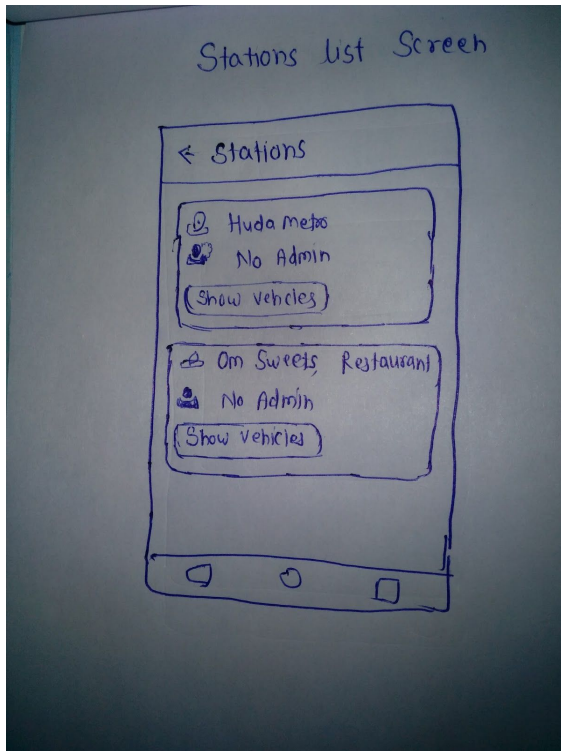 Stations list Screen
← Stations
Huda Metro
No Admin
Show vehicles
Om Sweets, Restaurant
No Admin
Show vehicles